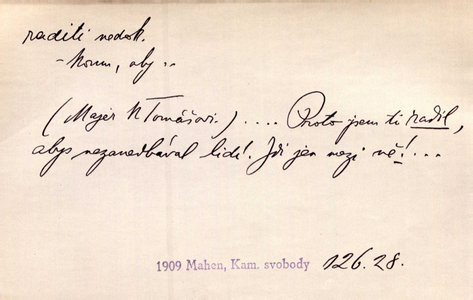 raditi nedok.
- komu, aby ..
(Majer k Tomášovi.) .... Proto jsem ti radil,
abys nezanedbával lidí! Jdi jen mezi ně! ...
1909 Mahen, Kam. svobody 126.28.